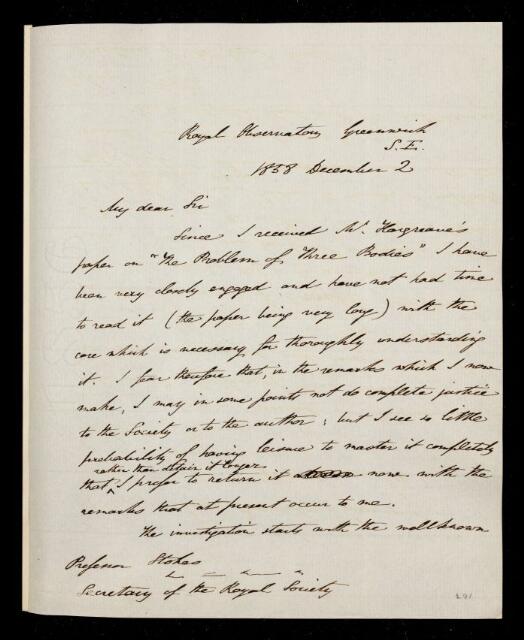 Royal Observatory Greenwich
S.E.
1858 December 2
My dear Sir
Since I received Mr. Hargreave's
paper on "The Problem of Three Bodies" I have
been very closely engaged and have not had time
to read it (the paper being very long) with the
care which is necessary for thoroughly understanding
it. I fear therefore that, in the remarks which I now
make, I may in some points not do complete justice
to the Society or to the author; but I see so little
probability of having leisure to master it completely
rather than detain it longer
that I prefer to return it now with the
remarks that at present occur to me.
The investigation starts with the wellknown
Professor Stokes
Secretary of the Royal Society